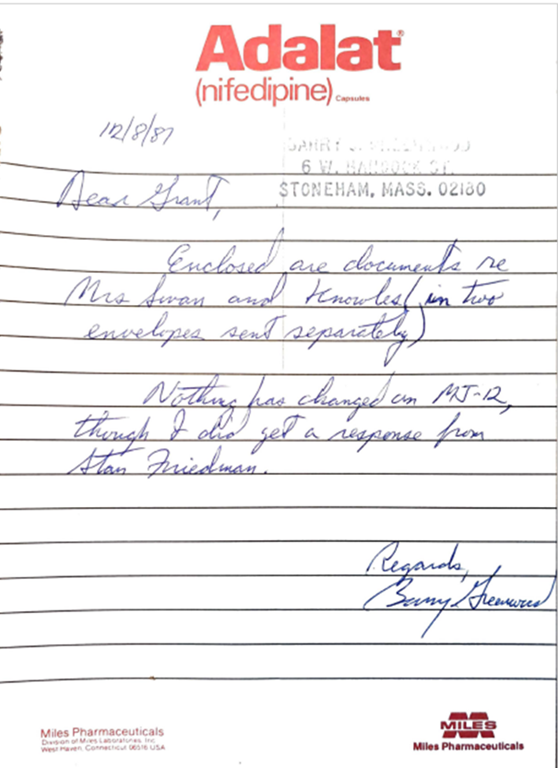 Adalat®
(nifedipine) Capsules
12/8/87
6 W. HANCOCK ST.
STONEHAM, MASS. 02180
Dear Grant,
Enclosed are documents re
Mrs Swan and Knowles (in two
envelopes sent separately)
Nothing has changed on MJ-12,
though I did get a response from
Stan Friedman.
Regards,
Barry Greenwood
Miles Pharmaceuticals
Division of Miles Laboratories, Inc.
West Haven, Connecticut 06516 USA
MILES
Miles Pharmaceuticals